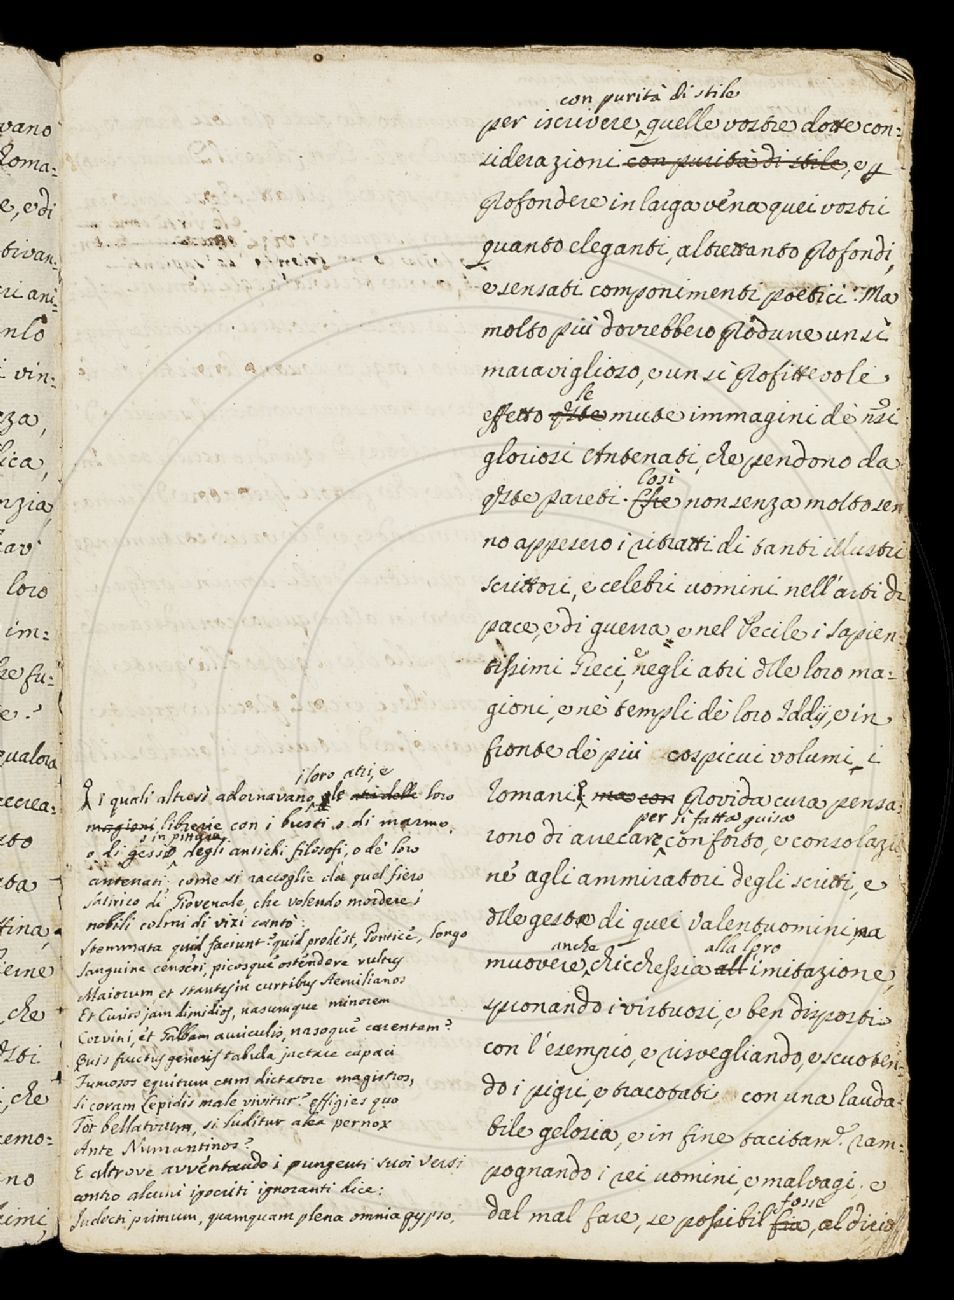 vano
Roma:
e, e di
tivan:
ri ani:
nlo
i vin:
zza,
lica,
nzia,
rav'
loro
im:
re fu:
e?
qualora
ecrea:
sto
ata
ffina,
ierne
che
osti
, che
remo:
no
simi,
con purità di stile
per iscrivere quelle vostre dotte con:
siderazioni con purità di stile, e p
profondere in larga vena quei vostri
quanto eleganti, altrettanto profondi,
e sensati componimenti poetici. Ma
molto più dovrebbero produrre un sì
maraviglioso, e un sì profittevole
le
effetto qste mute immagini de' nri
gloriosi Antenati, che pendono da
Così
qste pareti. Che non senza molto sen
no appesero i ritratti di tanti illustri
scrittori, e celebri uomini nell'arti di
pace, e di guerra, e nel Pecile i Sapien:
tissimi Greci, e negli atri dlle loro ma:
gioni, e ne' templi de' loro Iddij, e in
fronte de' più cospicui volumi, i
Romani ma con provida cura pensa:
per sì fatta guisa
rono di arrecare conforto, e consolazio
ne agli ammiratori degli scritti, e
dlle geste di quei valentuomini, ma
anche alla loro
muovere chicchessia all' imitazione,
spronando i virtuosi, e ben disposti
con l'esempio, e risvegliando, e scuoten:
do i pigri, e tracotati con una lauda:
bile gelosia, e in fine tacitamte. ram:
pognando i rei uomini, e malvagi, e
fosse
dal mal fare, se possibil fia, al diri
i loro atri, e
i quali altresì adornavano gli atri delle loro
magioni librerie con i busti o di marmo,
o in pittura
o di gesso degli antichi filosofi, o de' loro
antenati, come si raccoglie da quel fiero
satirico di Giovenale, che volendo mordere i
nobili colmi di vizi cantò:
Stemmata quid faciunt? quid prodest, Pontice, longo
Sanguine censeri, pictosque ostendere vultus
Maiorum et stantes in curribus Aemilianos
Et Curios jam dimidios, nasumque minorem
Corvini, et Galbam auriculis, nasoque carentem?
Quis fructus generis tabula jactare capaci
Fumosos equitum cum dictatore magistros,
Si coram Lepidis male vivitur? effigies quo
Tot bellatorum, si luditur alea pernox
Ante Numantinos?
E altrove avventando i pungenti suoi versi
contro alcuni ipocriti ignoranti dice:
Indocti primum, quamquam plena omnia gypso,